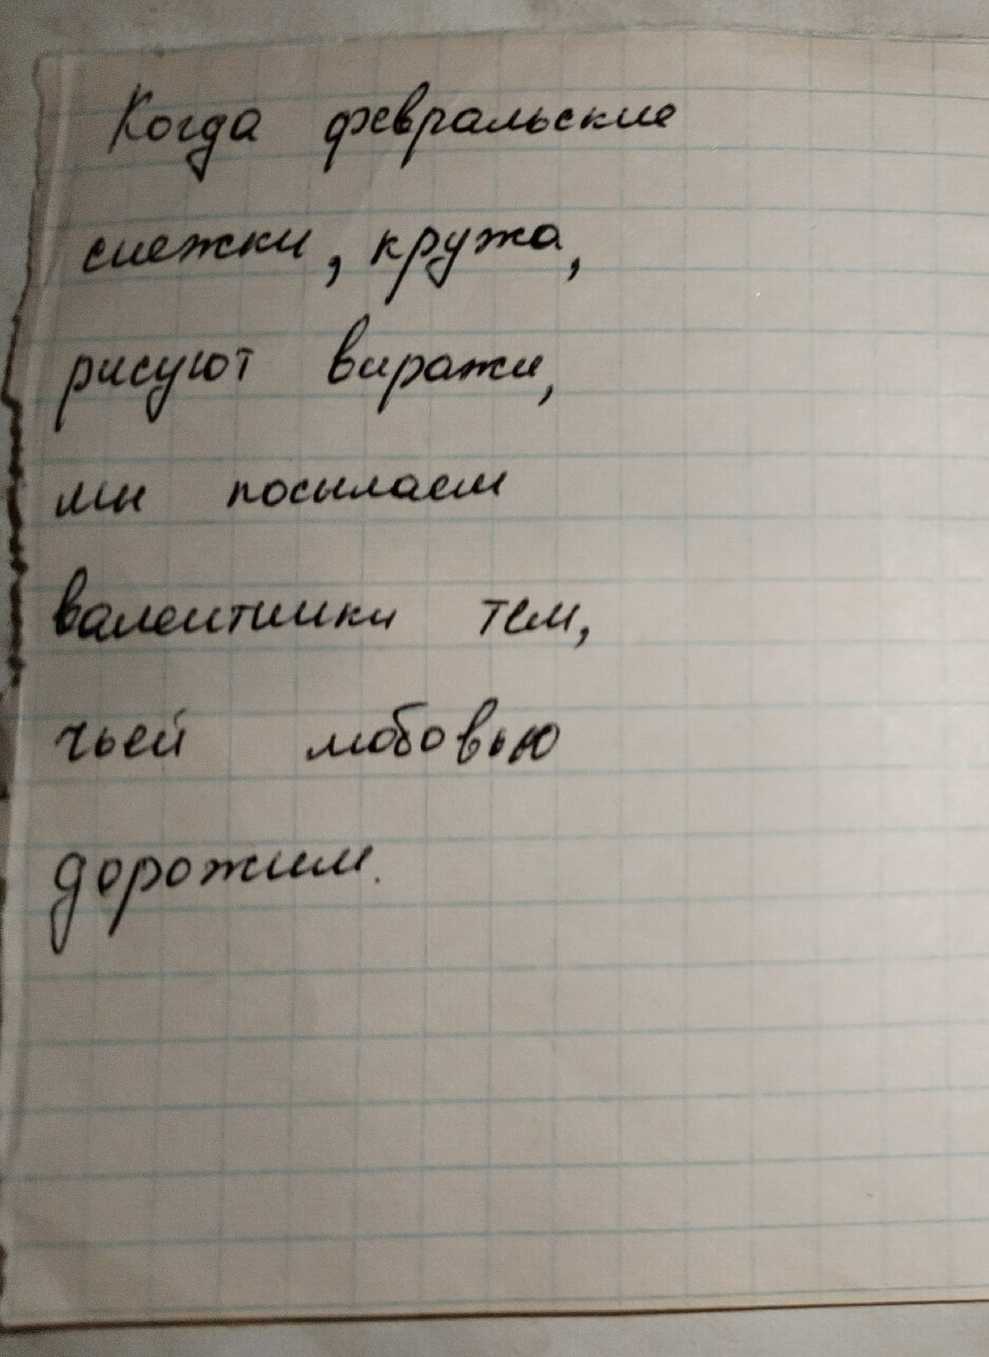 Когда февральские
снежки, кружа,
рисуют виражи,
мы посылаем
валентинки тем,
чьей любовью
дорожим.